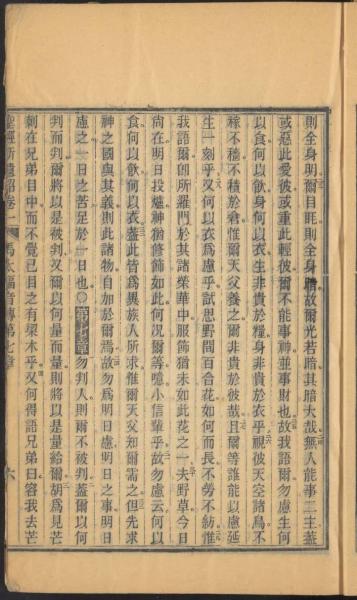 則全身明爾目眊則全身暗故爾光若暗其暗大哉無人能事二主蓋
或惡此愛彼或重此輕彼爾不能事神並事財也故我語爾勿慮生何
以食何以飲身何以衣生非貴於糧身非貴於衣乎視彼天空諸鳥不
稼不穡不積於倉惟爾天父養之爾非貴於彼哉且爾等誰能以慮延
生一刻乎又何以衣爲慮乎試思野間百合花如何而長不勞不紡惟
我語爾卽所羅門於其諸榮華中服飾猶未如此花之一夫野草今日
尙在明日投爐神猶修飾如此何况爾等噫小信輩乎故勿慮云何以
食何以飲何以衣蓋此皆爲異族人所求惟天父知爾需之但先求
神之國與其義則此諸物自加於爾焉故勿爲明日慮明日之事明日
慮之一日之苦足於一日也○第七章勿判人則爾不被判蓋爾以何
判而判爾將以是被判又爾以何量而量則將以是量給爾胡爲見芒
刺在兄弟目中而不覺己目之有梁木乎又何得語兄弟曰容我去芒
聖經新遺詔卷一 馬太福音傳第七章 六